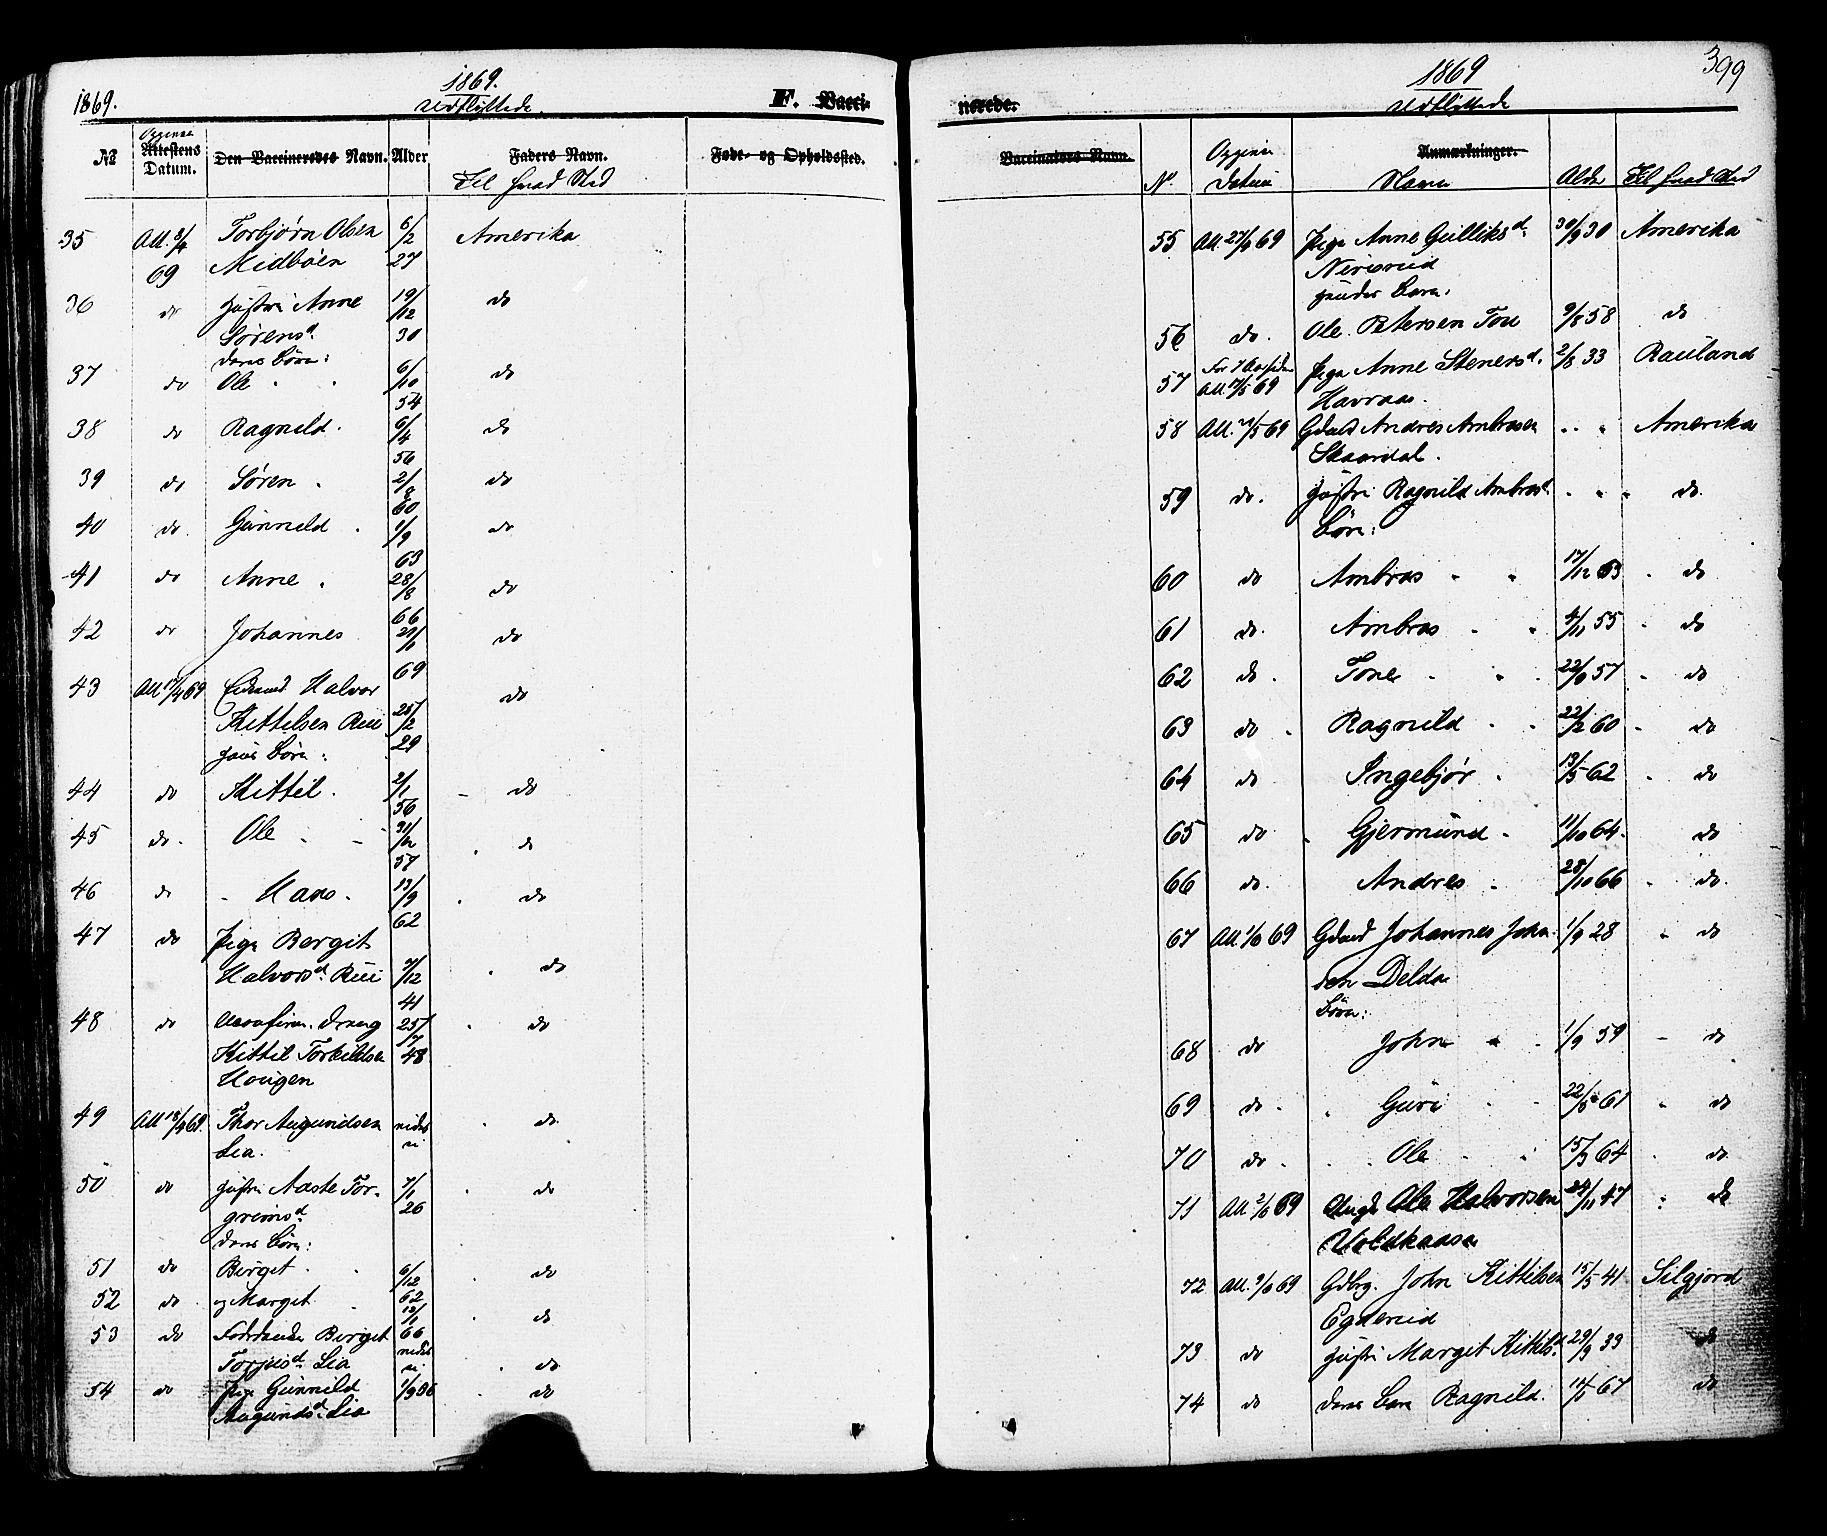 1869.
1869.
Udflyttede
F. Vacci-
No
Attestens Datum.
Den Vaccineredes Navn.
Alder
Faders Navn.
Til hvad Sted
Føde- og Opholdssted.
35 Att. 8/4 69 Torbjørn Olsen Midbøen 6/2 27 Amerika
36 do Hustru Anne Sørensd. 19/12 30 do
deres Børn:
37 do Ole 6/10 54 do
38 do Ragnild. 6/4 56 do
39 do Søren 2/8 60 do
40 do Gunnild 1/9 63 do
41 do Anne 28/8 66 do
42 do Johannes 69 do
43 Att. 69 Halvor Kittilsen Rui 25/2 29 do
hans Børn:
44 do Kittil. 2/1 56 do
45 do. Ole 31/12 57 do
46 do Hans 13/9 62 do
47 do Pige Bergit Halvorsd. Rui 7/12 41 do
48 do Kittil Torkildsen Hougen 25/7 48 do
49 Att. 18/4 69. Thor Augundsen Lia. do
50 do Hustru Aaste Torgrimsd. 7/1 26 do
deres Børn:
51 do Birget 6/12 62 do
52 do og Marget 12/1 66 do
53 do Birget Torjusd. Lia do
54 do Pige Gunnild Augundsd. Lia do
399
1869
Udflyttede
nerede.
Vaccinatørs Navn.
Anmærkninger.
N. Datum Navn Alder Til hvad Sted
55 Att. 27/4 69 Pige Anne Gulliksd. 30/9 30 Amerika
hendes Barn:
56 do. Ole Petersen 9/8 58 do
57 Att. 69 Pige Anne Stenersd. Havraas. 2/8 33 Rauland
58 Att. 69 Andres Ambrosen Skaardal. Amerika
59 do. Hustru Ragnild Ambrosd. do.
Børn:
60 do Ambros 17/12 53 do
61 do. Ambros 4/11 55 do
62 do. Tone 57 do
63 do Ragnild 22/2 60 do
64 do Ingebjør 13/5 62 do
65 do Gjermund 11/10 64. do
66 do. Andres 28/10 66 do.
67 Att. 1/6 69 Johannes Johnsen Delda 1/9 28 do
Børn:
68 do John 1/9 59 do
69 do Guri 61 do
70 do Ole 15/3 64 do
71 Att. 2/6 69 Ungk Ole Halvorsen Voldkaasa 24/11 47 do
72 Att. 9/6 69 Gdbrg. John Kittilsen Egderud 15/5 41 Silgjord
73 do Hustru Margit Kittilsd. 29/9 39 do
74 do deres Barn Ragnild. 67 do